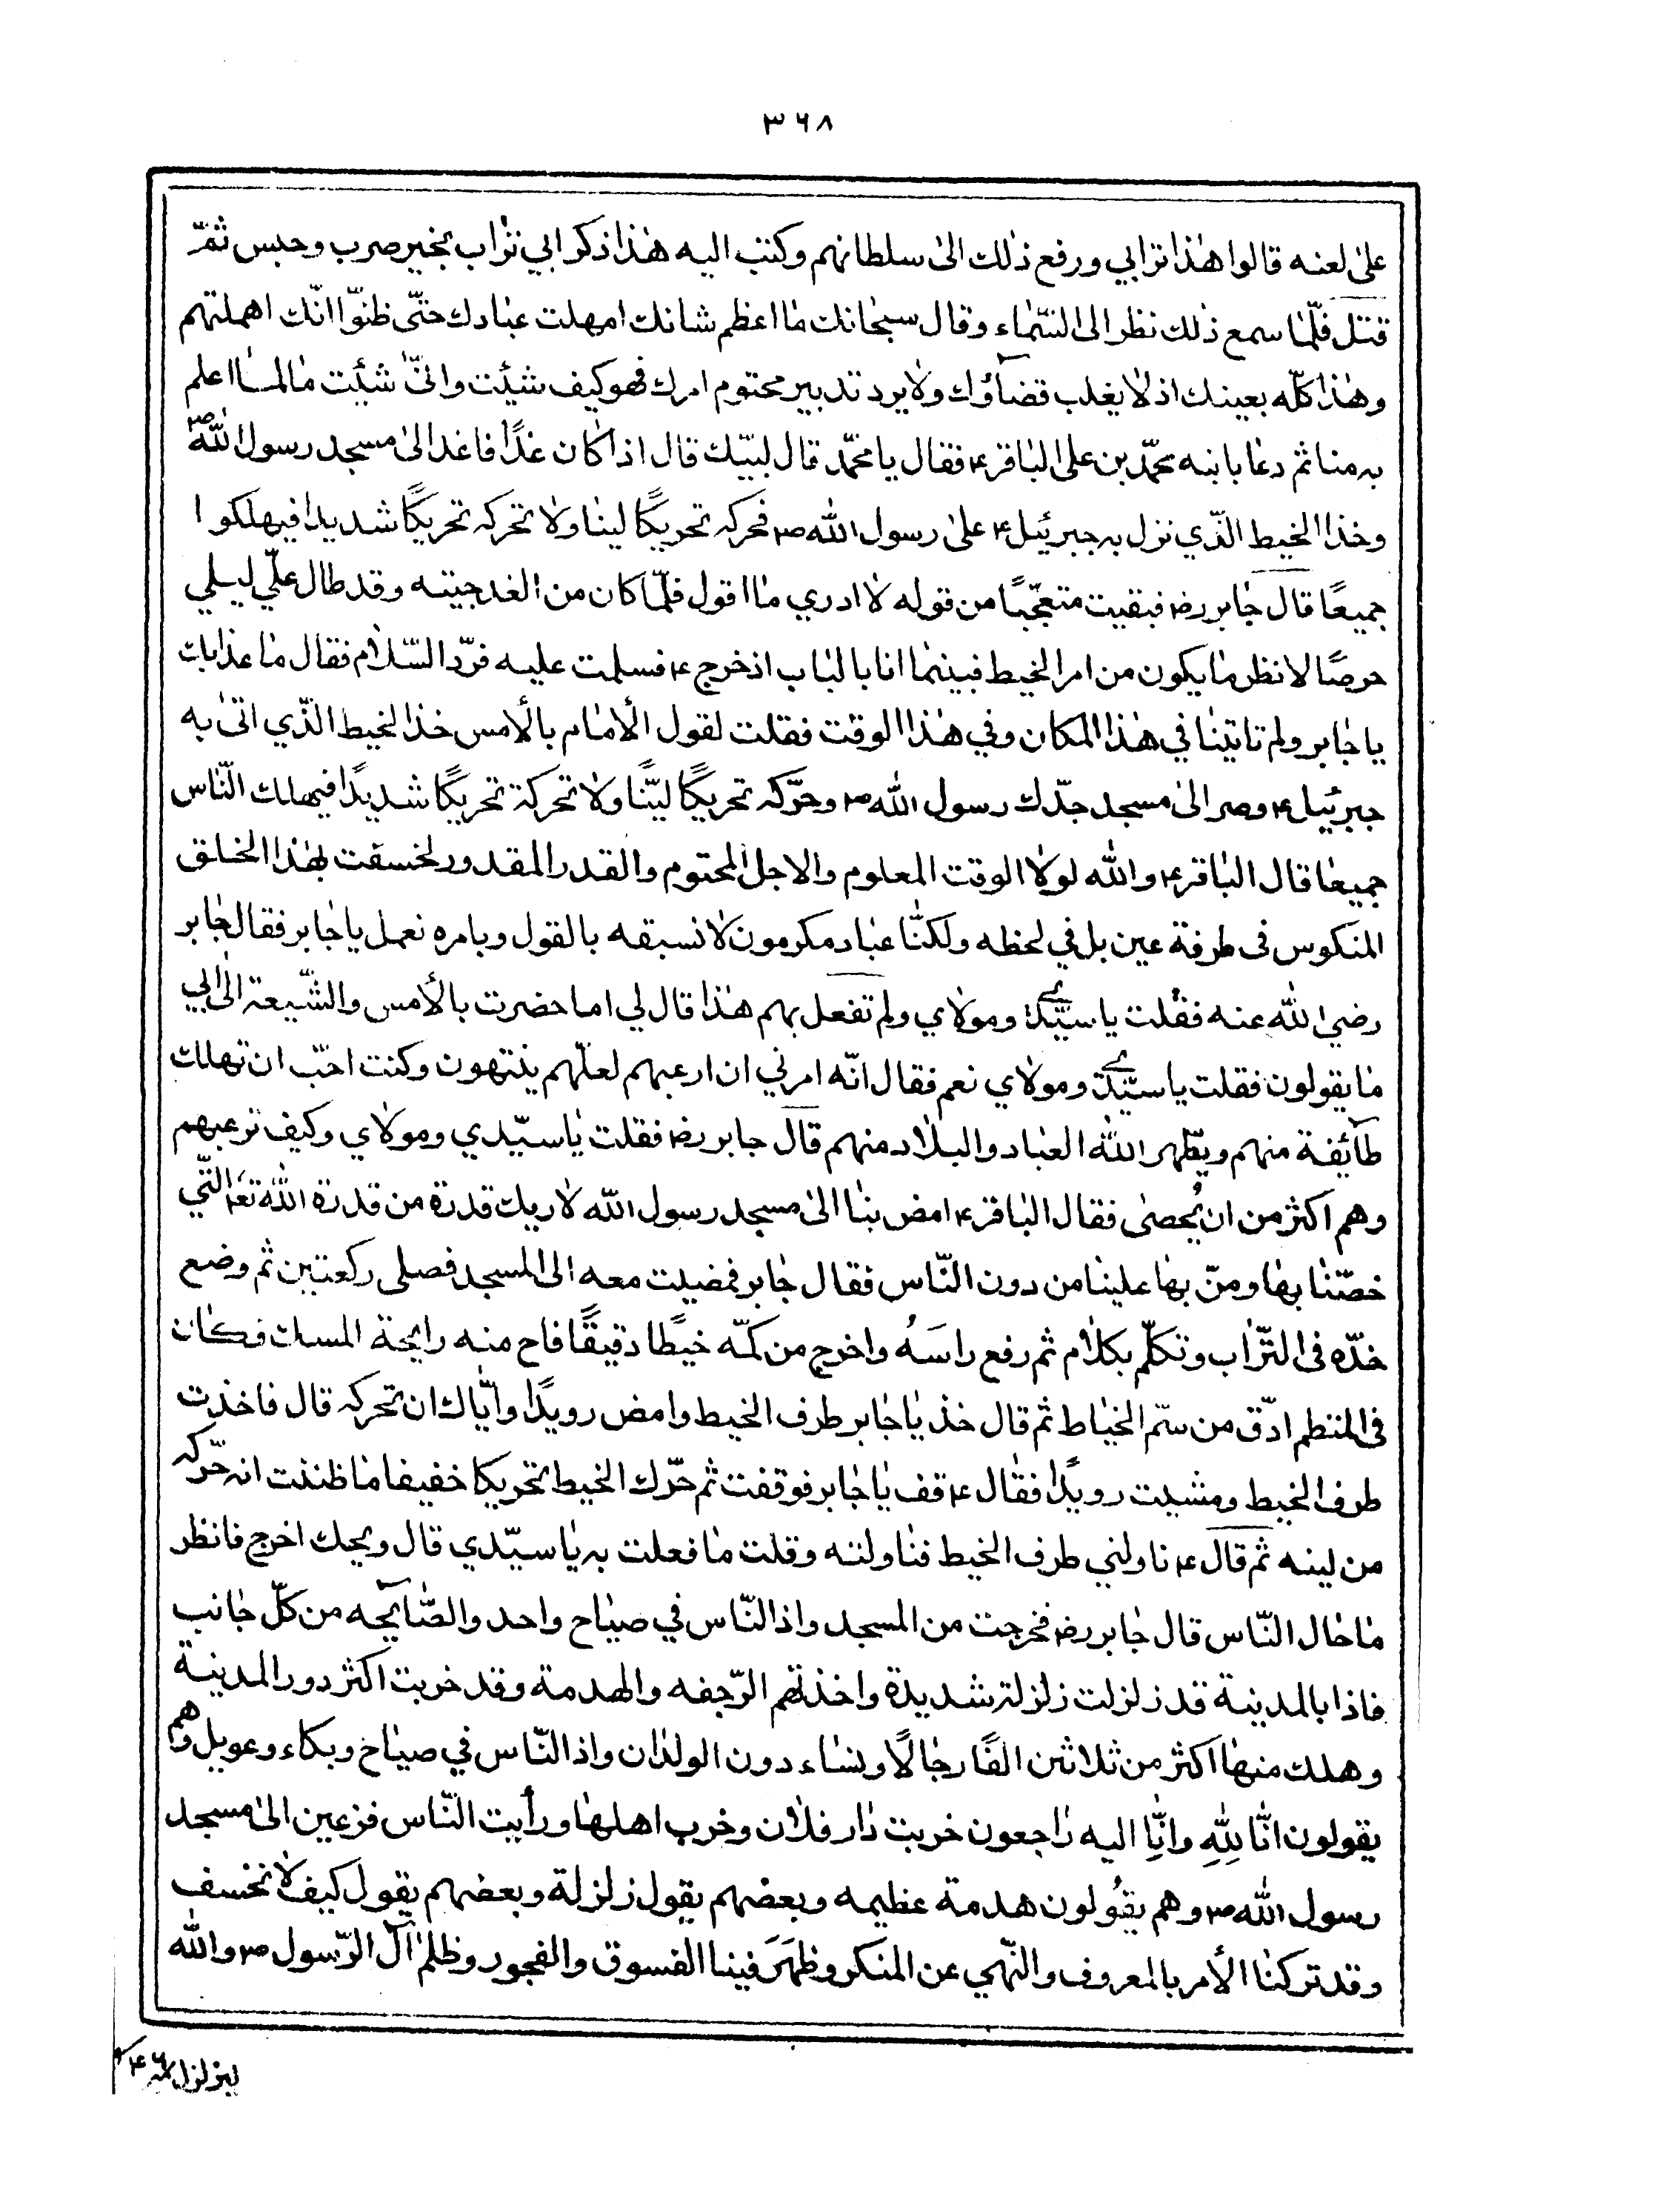 ٣٦٨
على لعنه قالوا هذا ترابي ورفع ذلك الى سلطانهم وكتب اليه هذا ذكر ابي تراب بخير ضرب وحبس ثمّ
قتل فلمّا سمع ذلك نظر الى السّماء وقال سبحانك ما اعظم شانك امهلت عبادك حتّى ظنوّا انّك اهملتهم
وهذا كلّه بعينك اذ لا يغلب قضاؤك ولا يرد تدبير محتوم امرك فهو كيف شئت وانّى شئيت ما لما اعلم
به منا ثم دعا بابنه محمّد بن على الباقر ع فقال يا محمّد قال لبيّك قال اذا كان غدًا فاغد الى مسجد رسول الله ص
وخذ الخيط الذّي نزل به جبرئيل ع على رسول الله ص فحركه تحريكًا لينا ولا تحركه تحريكًا شديدا فيهلكوا
جميعًا قال جابر رض فبقيت متعجّبًا من قوله لا ادري ما اقول فلمّا كان من الغد جيته وقد طال علّي ليلي
حرصًا لانظر ما يكون من امر الخيط فبينما انا بالباب اذ خرج ع فسلمت عليه فرّد السّلام فقال ما غدابك
يا جابر ولم تاتينا في هذا المكان وفي هذا الوقت فقلت لقول الأمام بالأمس خذ الخيط الذّي اتى به
جبرئيل ع وصر الى مسجد جدّك رسول الله ص وحرّكه تحريكًا ليّنًا ولا تحركة تحريكًا شديدًا فيهلك النّاس
جميعا قال الباقر ع والله لولا الوقت المعلوم والاجل المحتوم والقدر المقدور لخسفت بهذا الخلق
المنكوس فى طرفة عين بل في لحظه ولكنّا عباد مكرمون لا نسبقه بالقول وبامره نعمل يا جابر فقال جابر
رضى الله عنه فقلت يا سيّدي ومولاي ولم تفعل بهم هذا قال لي اما حضرت بالأمس والشّيعة الى ابي
ما يقولون فقلت يا سيّدي ومولاي نعم فقال انّه امرني ان ارعبهم لعلّهم ينتهون وكنت احبّ ان تهلك
طآئفة منهم ويطّهر الله العباد والبلاد منهم قال جابر رض فقلت يا سيّدي ومولاي وكيف ترعبهم
وهم اكثر من ان يُحصى فقال الباقر ع امض بنا الى مسجد رسول الله لاريك قدرة من قدرة الله تعا التّي
خصّنا بها ومنّ بها علينا من دون النّاس فقال جابر فمضيت معه الى المسجد فصلى ركعتين ثم وضع
خدّه فى التّراب وتكلّم بكلام ثم رفع راسَهُ واخرج من كمّه خيطًا دقيقًا فاح منه رايحة المسك فكان
فى المنظم ادّق من سمّ الخياط ثم قال خذ يا جابر طرف الخيط وامض رويدًا وايّاك ان تحركه قال فاخذت
طرف الخيط ومشيت رويدًا فقال ع قف يا جابر فوقفت ثم حرّك الخيط تحريكا خفيفا ما ظننت انه حرّكه
من لينه ثم قال ع ناولني طرف الخيط فناولته وقلت ما فعلت به يا سيّدي قال ويحك اخرج فانظر
ما حال النّاس قال جابر رض فخرجت من المسجد واذ النّاس في صياح واحد والصّايحه من كلّ جانب
فاذا بالمدينة قد زلزلت زلزلة شديدة واخذتهم الرّجفه والهدمة وقد خربت اكثر دور المدينة
وهلك منها اكثر من ثلاثين الفًا رجالًا ونساء دون الولدان واذ النّاس في صياح وبكاء وعويل وهم
يقولون انّا لِلّهِ وانّا اليه راجعون خربت دار فلان وخرب اهلها ورأيت النّاس فزعين الى مسجد
رسول الله ص وهم يقولون هدمة عظيمه وبعضهم يقول زلزلة وبعضهم يقول كيف لا نخسف
وقد تركنا الأمر بالمعروف والنّهي عن المنكر وظهَرَ فينا الفسوق والفجور وظلم آل الرّسول ص والله
ليزلزل